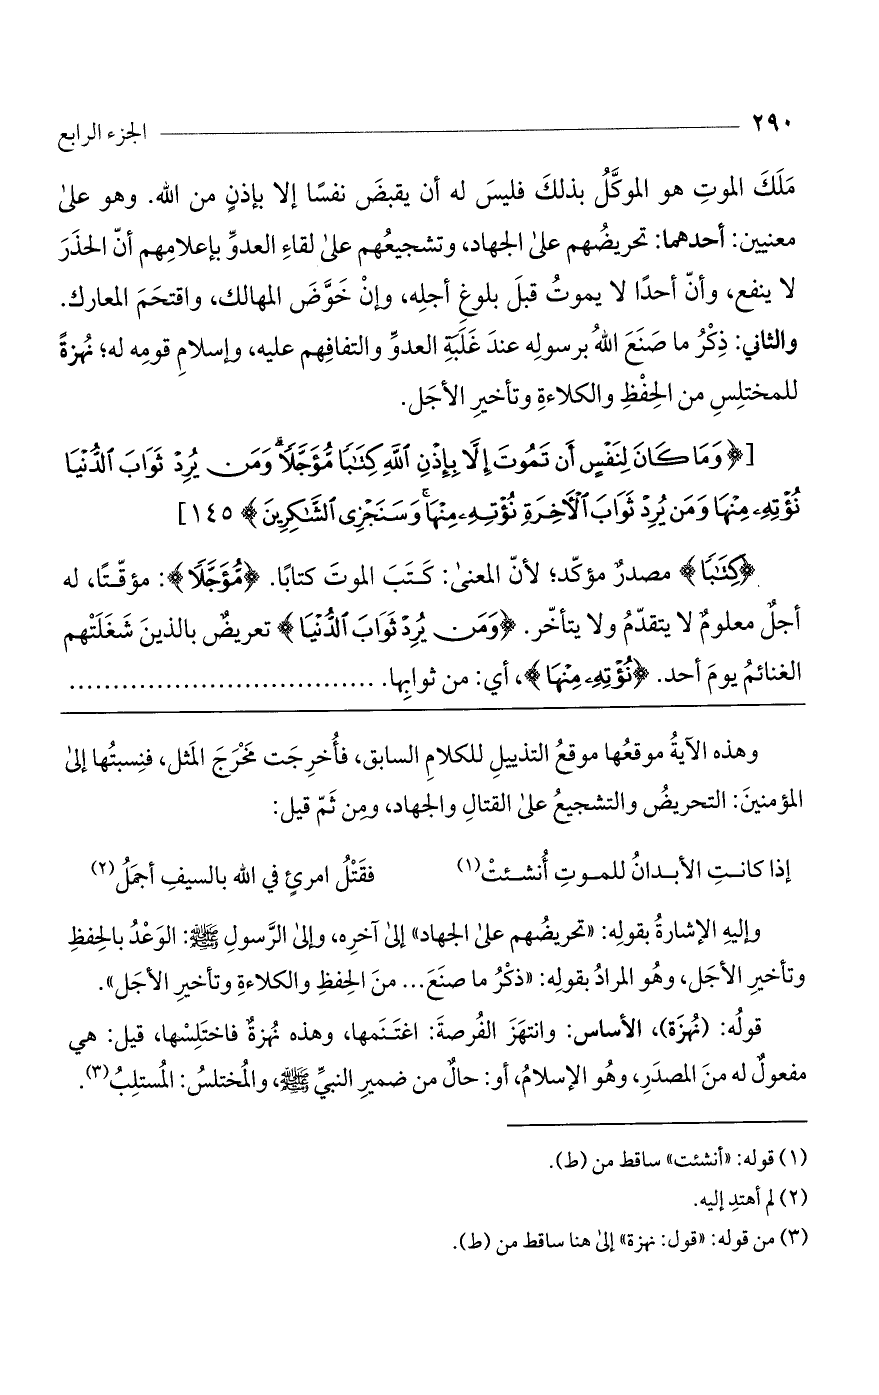 ٢٩٠ الجزء الرابع
مَلَكَ الموتِ هو الموكَّلُ بذلكَ فليسَ له أن يقبضَ نفسًا إلا بإذنٍ من الله. وهو علىٰ
معنيين: أحدهما: تحريضُهم علىٰ الجهاد، وتشجيعُهم علىٰ لقاءِ العدوِّ بإعلامِهم أنّ الحذَرَ
لا ينفع، وأنّ أحدًا لا يموتُ قبلَ بلوغِ أجلِه، وإنْ خَوَّضَ المهالك، واقتحَمَ المعارك.
والثاني: ذِكْرُ ما صَنَعَ اللهُ برسولِه عندَ غَلَبَةِ العدوِّ والتفافِهم عليه، وإسلامِ قومِه له؛ نُهزةً
للمختلِسِ من الحِفْظِ والكلاءةِ وتأخيرِ الأجَل.
[﴿وَمَا كَانَ لِنَفْسٍ أَن تَمُوتَ إِلَّا بِإِذْنِ ٱللَّهِ كِتَٰبًا مُّؤَجَّلًا ۗ وَمَن يُرِدْ ثَوَابَ ٱلدُّنْيَا
نُؤْتِهِۦ مِنْهَا وَمَن يُرِدْ ثَوَابَ ٱلْءَاخِرَةِ نُؤْتِهِۦ مِنْهَا ۚ وَسَنَجْزِى ٱلشَّٰكِرِينَ﴾ ١٤٥]
﴿كِتَٰبًا﴾ مصدرٌ مؤكّد؛ لأنّ المعنىٰ: كَتَبَ الموتَ كتابًا. ﴿مُّؤَجَّلًا﴾: مؤقّتًا، له
أجلٌ معلومٌ لا يتقدّمُ ولا يتأخّر. ﴿وَمَن يُرِدْ ثَوَابَ ٱلدُّنْيَا﴾ تعريضٌ بالذينَ شَغَلَتْهم
الغنائمُ يومَ أحد. ﴿نُؤْتِهِۦ مِنْهَا﴾، أي: من ثوابِها. ..................................
وهذه الآيةُ موقعُها موقعُ التذييلِ للكلامِ السابق، فأُخرِجَت مَخْرَجَ المَثل، فنِسبتُها إلىٰ
المؤمنينَ: التحريضُ والتشجيعُ علىٰ القتالِ والجهاد، ومِن ثَمّ قيل:
إذا كانتِ الأبدانُ للموتِ أُنشئتْ(١) فقَتْلُ امرئٍ في الله بالسيفِ أجمَلُ(٢)
وإليهِ الإشارةُ بقولِه: «تحريضُهم علىٰ الجهاد» إلىٰ آخرِه، وإلىٰ الرَّسولِ ﷺ: الوَعْدُ بالحِفظِ
وتأخيرِ الأجَل، وهُو المرادُ بقولِه: «ذكْرُ ما صنَعَ... منَ الحِفظِ والكلاءةِ وتأخيرِ الأجَل».
قولُه: (نُهزَة)، الأساس: وانتهَزَ الفُرصةَ: اغتَنَمها، وهذه نُهزةٌ فاختَلِسْها، قيل: هي
مفعولٌ له منَ المصدَرِ، وهُو الإسلامُ، أو: حالٌ من ضميرِ النبيِّ ﷺ، والمُختلسُ: المُستلِبُ(٣).
(١) قوله: «أنشئت» ساقط من (ط).
(٢) لم أهتدِ إليه.
(٣) من قوله: «قول: نهزة» إلىٰ هنا ساقط من (ط).